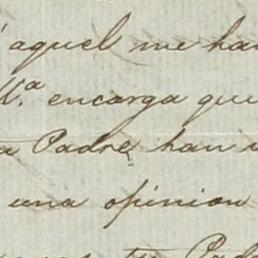 aquel me han
M.ª encarga que
Padre han
una opinion